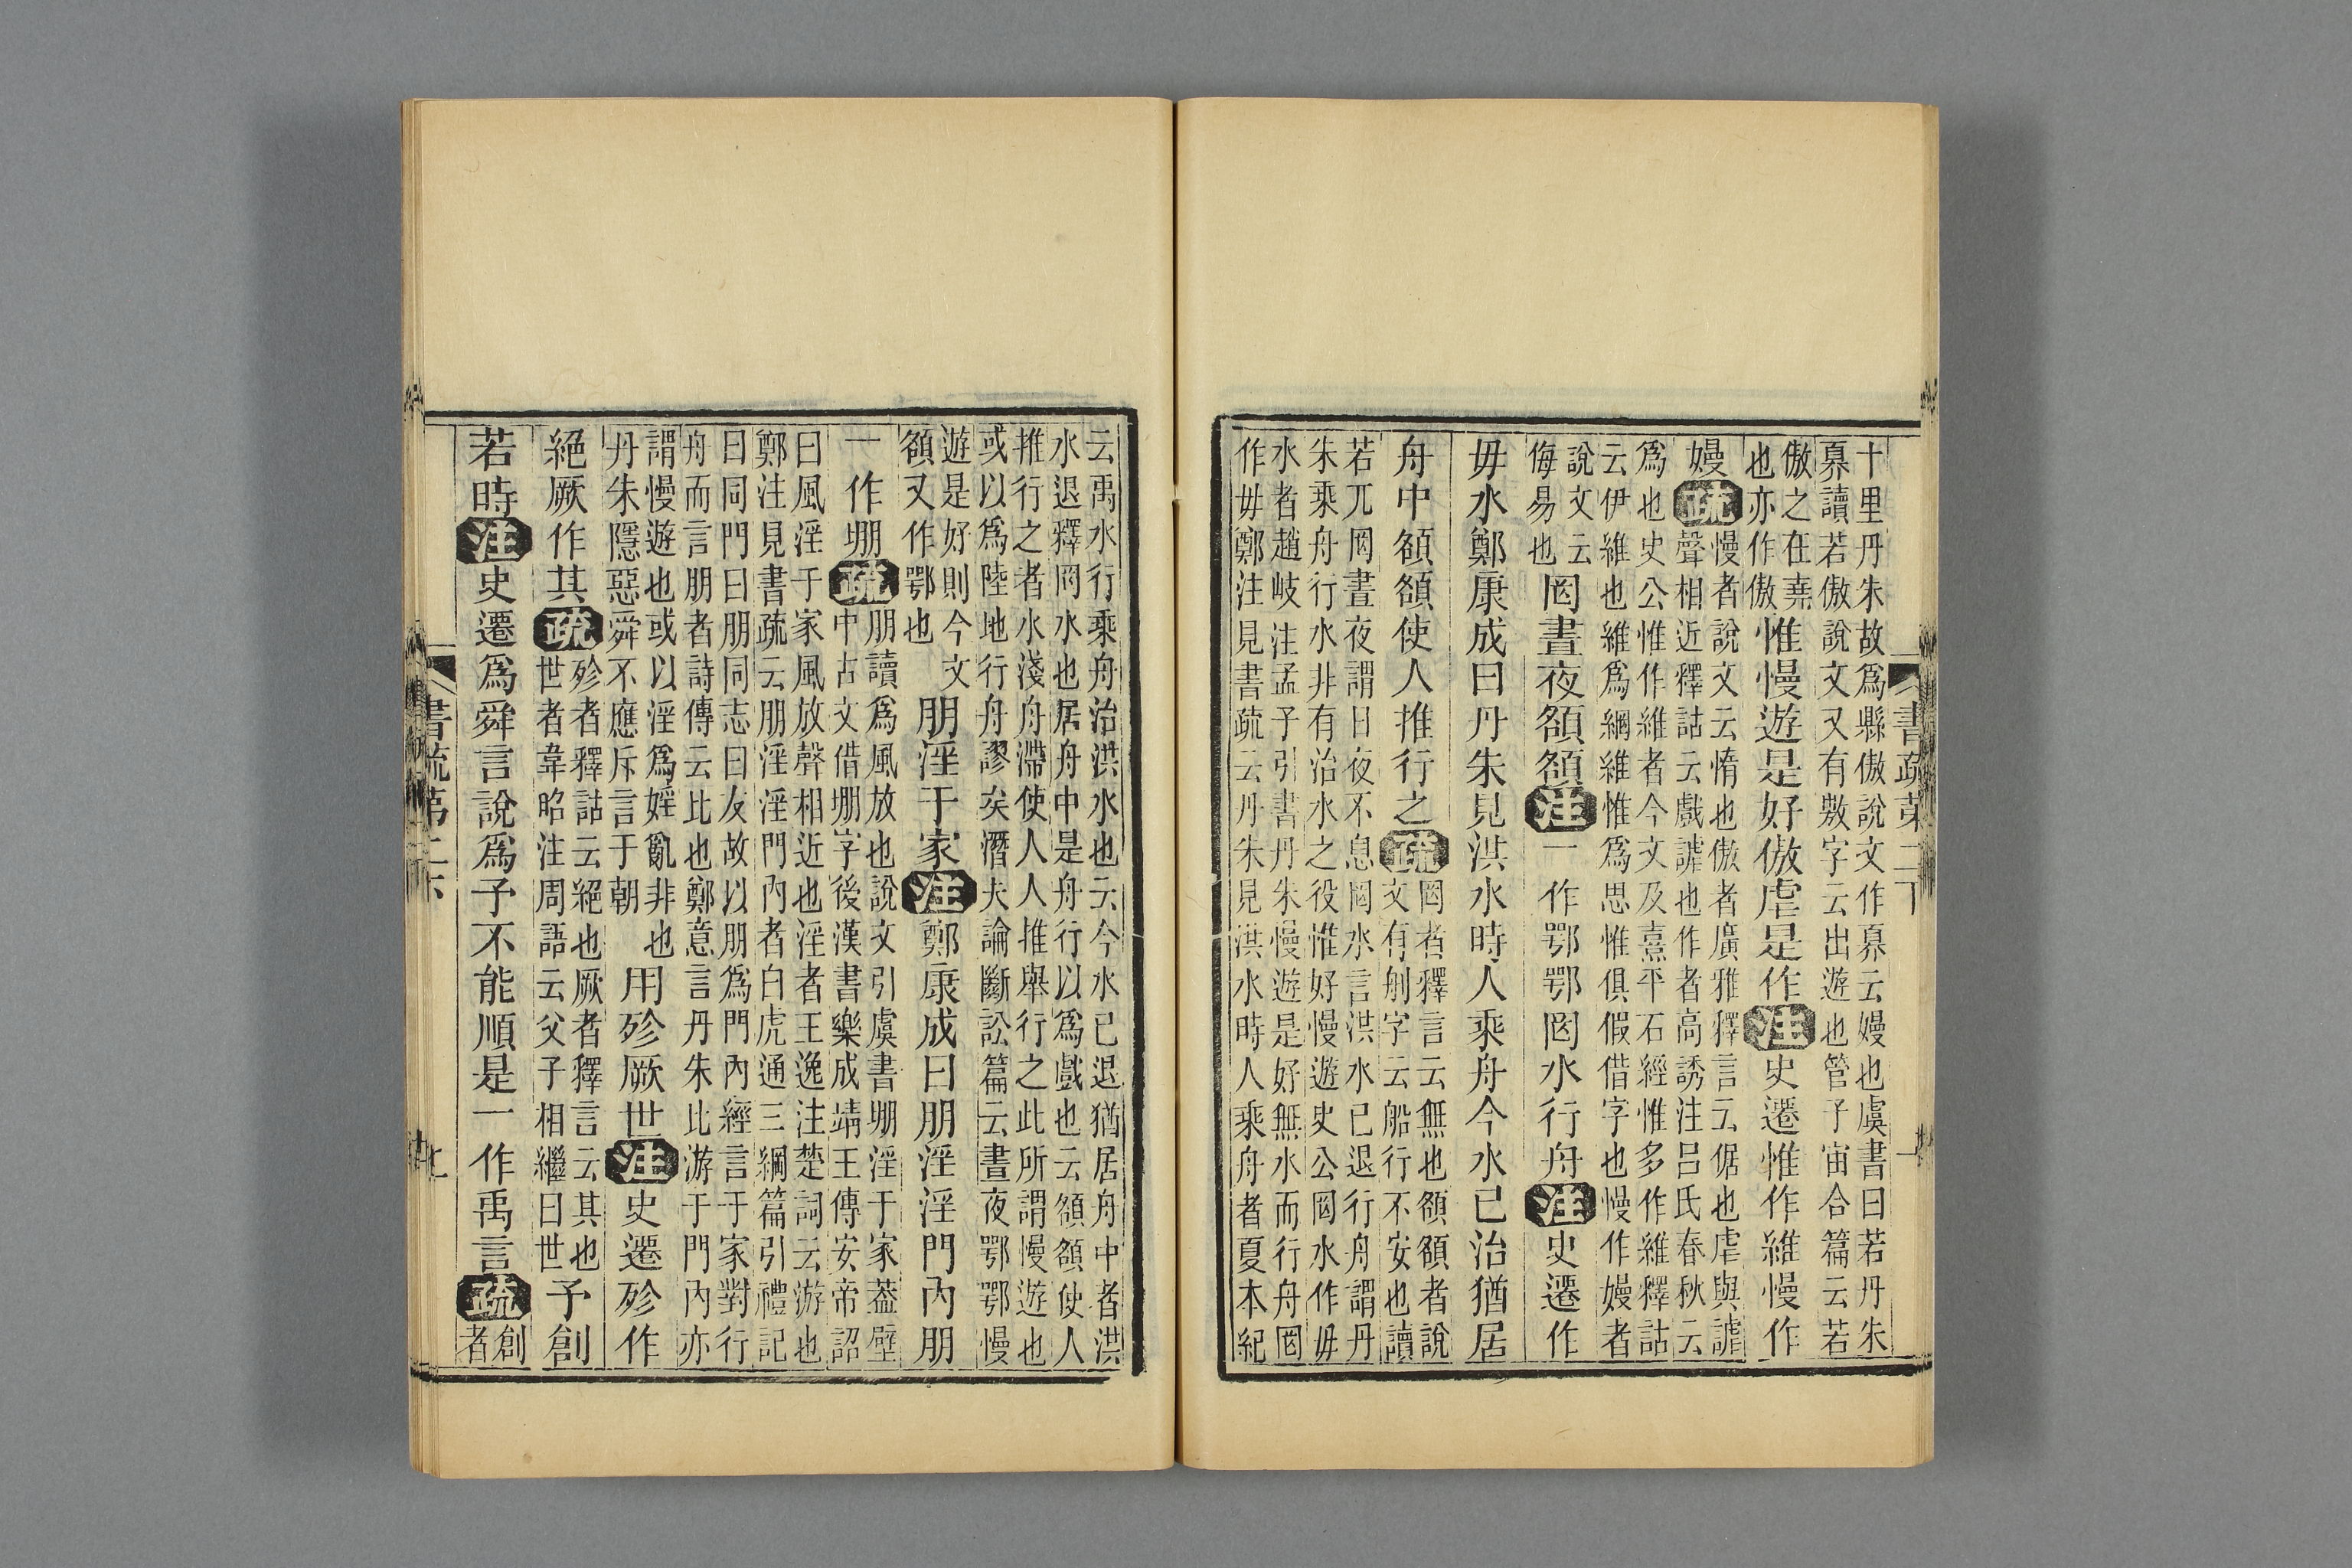 十里丹朱故爲縣傲說文作奡云嫚也虞書曰若丹朱
奡讀若傲說文又有敖字云出遊也管子宙合篇云若
傲之在堯
也亦作傲
惟慢遊是好傲虐是作注史遷惟作維慢作
嫚疏
慢者說文云惰也傲者廣雅釋言云倨也虐與謔
聲相近釋詁云戲謔也作者高誘注呂氏春秋云
爲也史公惟作維者今文及熹平石經惟多作維釋詁
云伊維也維爲綱維惟爲思惟俱假借字也慢作嫚者
說文云
侮易也
罔晝夜頟頟注一作鄂鄂罔水行舟注史遷作
毋水鄭康成曰丹朱見洪水時人乘舟今水已治猶居
舟中頟頟使人推行之疏
罔者釋言云無也頟頟者說
文有刖字云船行不安也讀
若兀罔晝夜謂日夜不息罔水言洪水已退行舟謂丹
朱乘舟行水非有治水之役惟好慢遊史公罔水作毋
水者趙岐注孟子引書丹朱慢遊是好無水而行舟罔
作毋鄭注見書疏云丹朱見洪水時人乘舟者夏本紀
云禹水行乘舟治洪水也云今水已退猶居舟中者洪
水退釋罔水也居舟中是舟行以爲戲也云頟頟使人
推行之者水淺舟滯使人人推舉行之此所謂慢遊也
或以爲陸地行舟謬矣潛夫論斷訟篇云晝夜鄂鄂慢
遊是好則今文
頟又作鄂也
朋淫于家注鄭康成曰朋淫淫門內朋
一作堋疏
朋讀爲風放也說文引虞書堋淫于家葢壁
中古文借堋字後漢書樂成靖王傳安帝詔
曰風淫于家風放聲相近也淫者王逸注楚詞云游也
鄭注見書疏云朋淫淫門內者白虎通三綱篇引禮記
曰同門曰朋同志曰友故以朋爲門內經言于家對行
舟而言朋者詩傳云比也鄭意言丹朱比游于門內亦
謂慢遊也或以淫爲婬亂非也
丹朱隱惡舜不應斥言于朝
用殄厥世注史遷殄作
絕厥作其疏
殄者釋詁云絕也厥者釋言云其也
世者韋昭注周語云父子相繼曰世
予創
若時注史遷爲舜言說爲予不能順是一作禹言疏
創
者
書疏第二下
書疏第二下